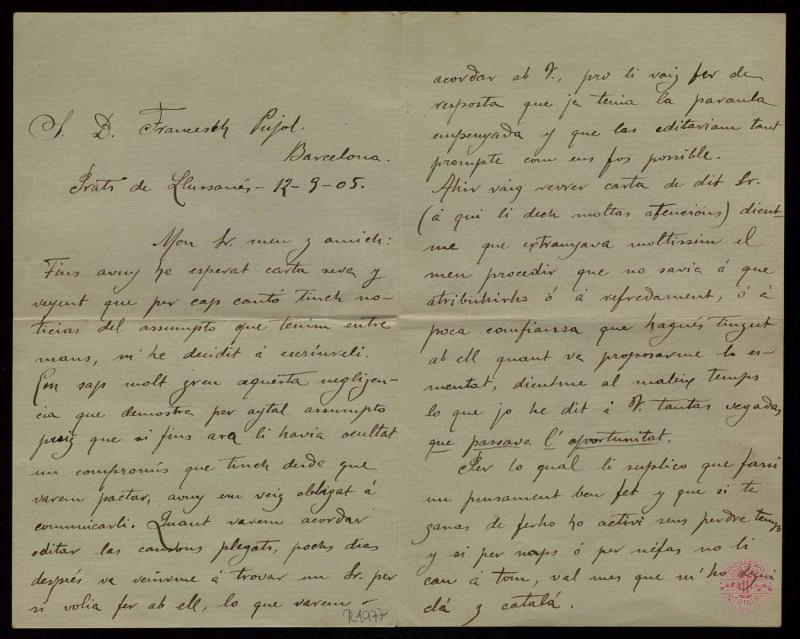 S. D. Francesch Pujol.
Barcelona.
Prats de Llussanés - 12-9-05.
Mon Sr. meu y amich:
Fins avuy he esperat carta seva y
veyent que per cap cantó tinch no-
ticias del assumpto que tenim entre
mans, m' he decidit á escriureli.
Em sap molt greu aquesta negligen-
cia que demostra per aytal assumpto
puig que si fins ara li havia ocultat
un compromís que tinch desde que
varem pactar, avuy em veig obligat á
comunicarli. Quant varem acordar
editar las cansons plegats, pochs dias
després va veurme á trovar un Sr. per
si volia fer ab ell, lo que varem
acordar ab V., pro li vaig fer de
resposta que ja tenia la paraula
empenyada y que las editariam tant
prompte com ens fos possible.
Ahir vaig revrer carta de dit Sr.
(á qui li dech moltas atencións) dient-
me que extranyava moltissim el
meu procedir que no savia á que
atribuhirho ó á refredament, ó á
poca confianssa que hagués tingut
ab ell quant va proposarme lo es-
mentat, dientme al mateix temps
lo que jo he dit á V. tantas vegadas,
que passava l' oportunitat.
Per lo qual li suplico que fassi
un pensament ben fet y que si te
ganas de ferho ho activi sens perdre temps
y si per naps ó per néfas no li
cau á tom, val mes que m' ho digui
clá y catalá.
R.1977